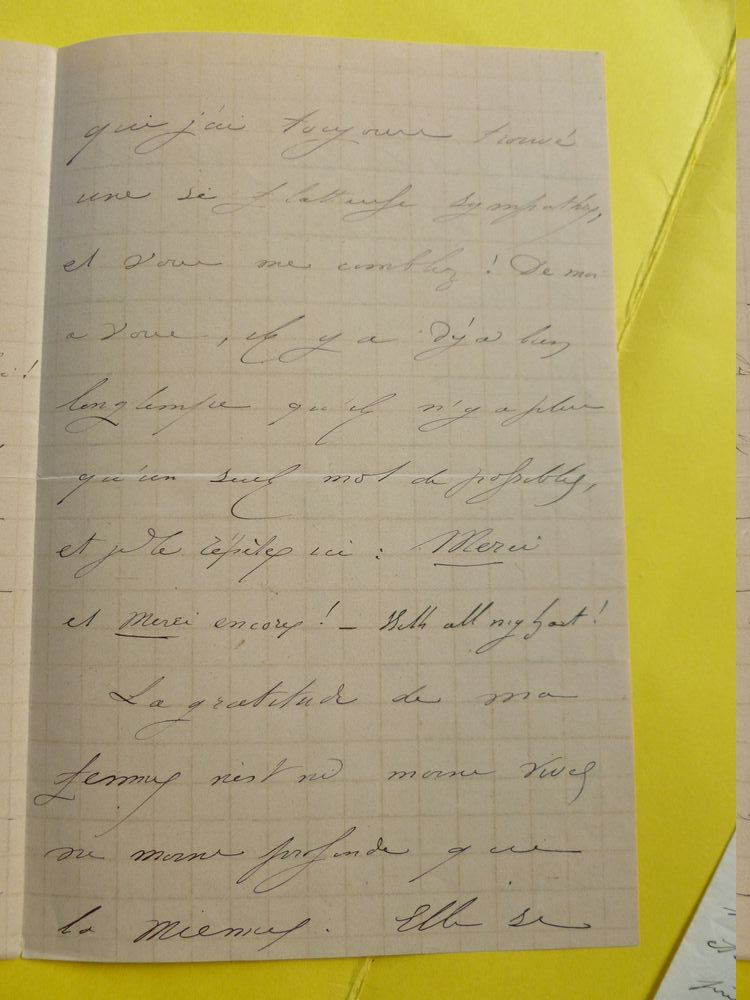 qui j'ai toujours trouvé
une si flatteuse sympathie,
et vous me comblez ! De moi
a vous, il y a déjà bien
longtemps qu'il n'y a plus
qu'un seul mot de possible,
et je le répète ici : Merci
et Merci encore ! – With all my heart !
La gratitude de ma
femme n'est ni moins vive
ni moins profonde que
la mienne. Elle se